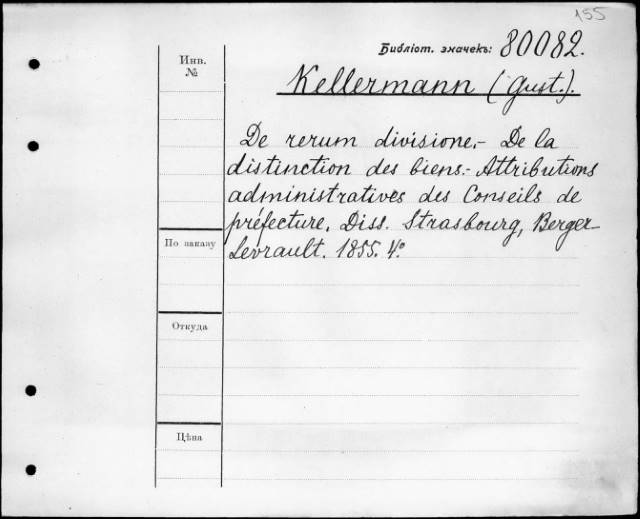 155
Библіот. значекъ: 80082.
Инв.
№
Kellermann (Gust.).
De rerum divisione.- De la
distinction des biens.- Attributions
administratives des Conseils de
préfecture. Diss. Strasbourg, Berger-
Levrault. 1855. 4°
По заказу
Откуда
Цѣна